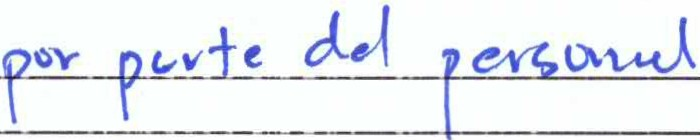 por parte del personal